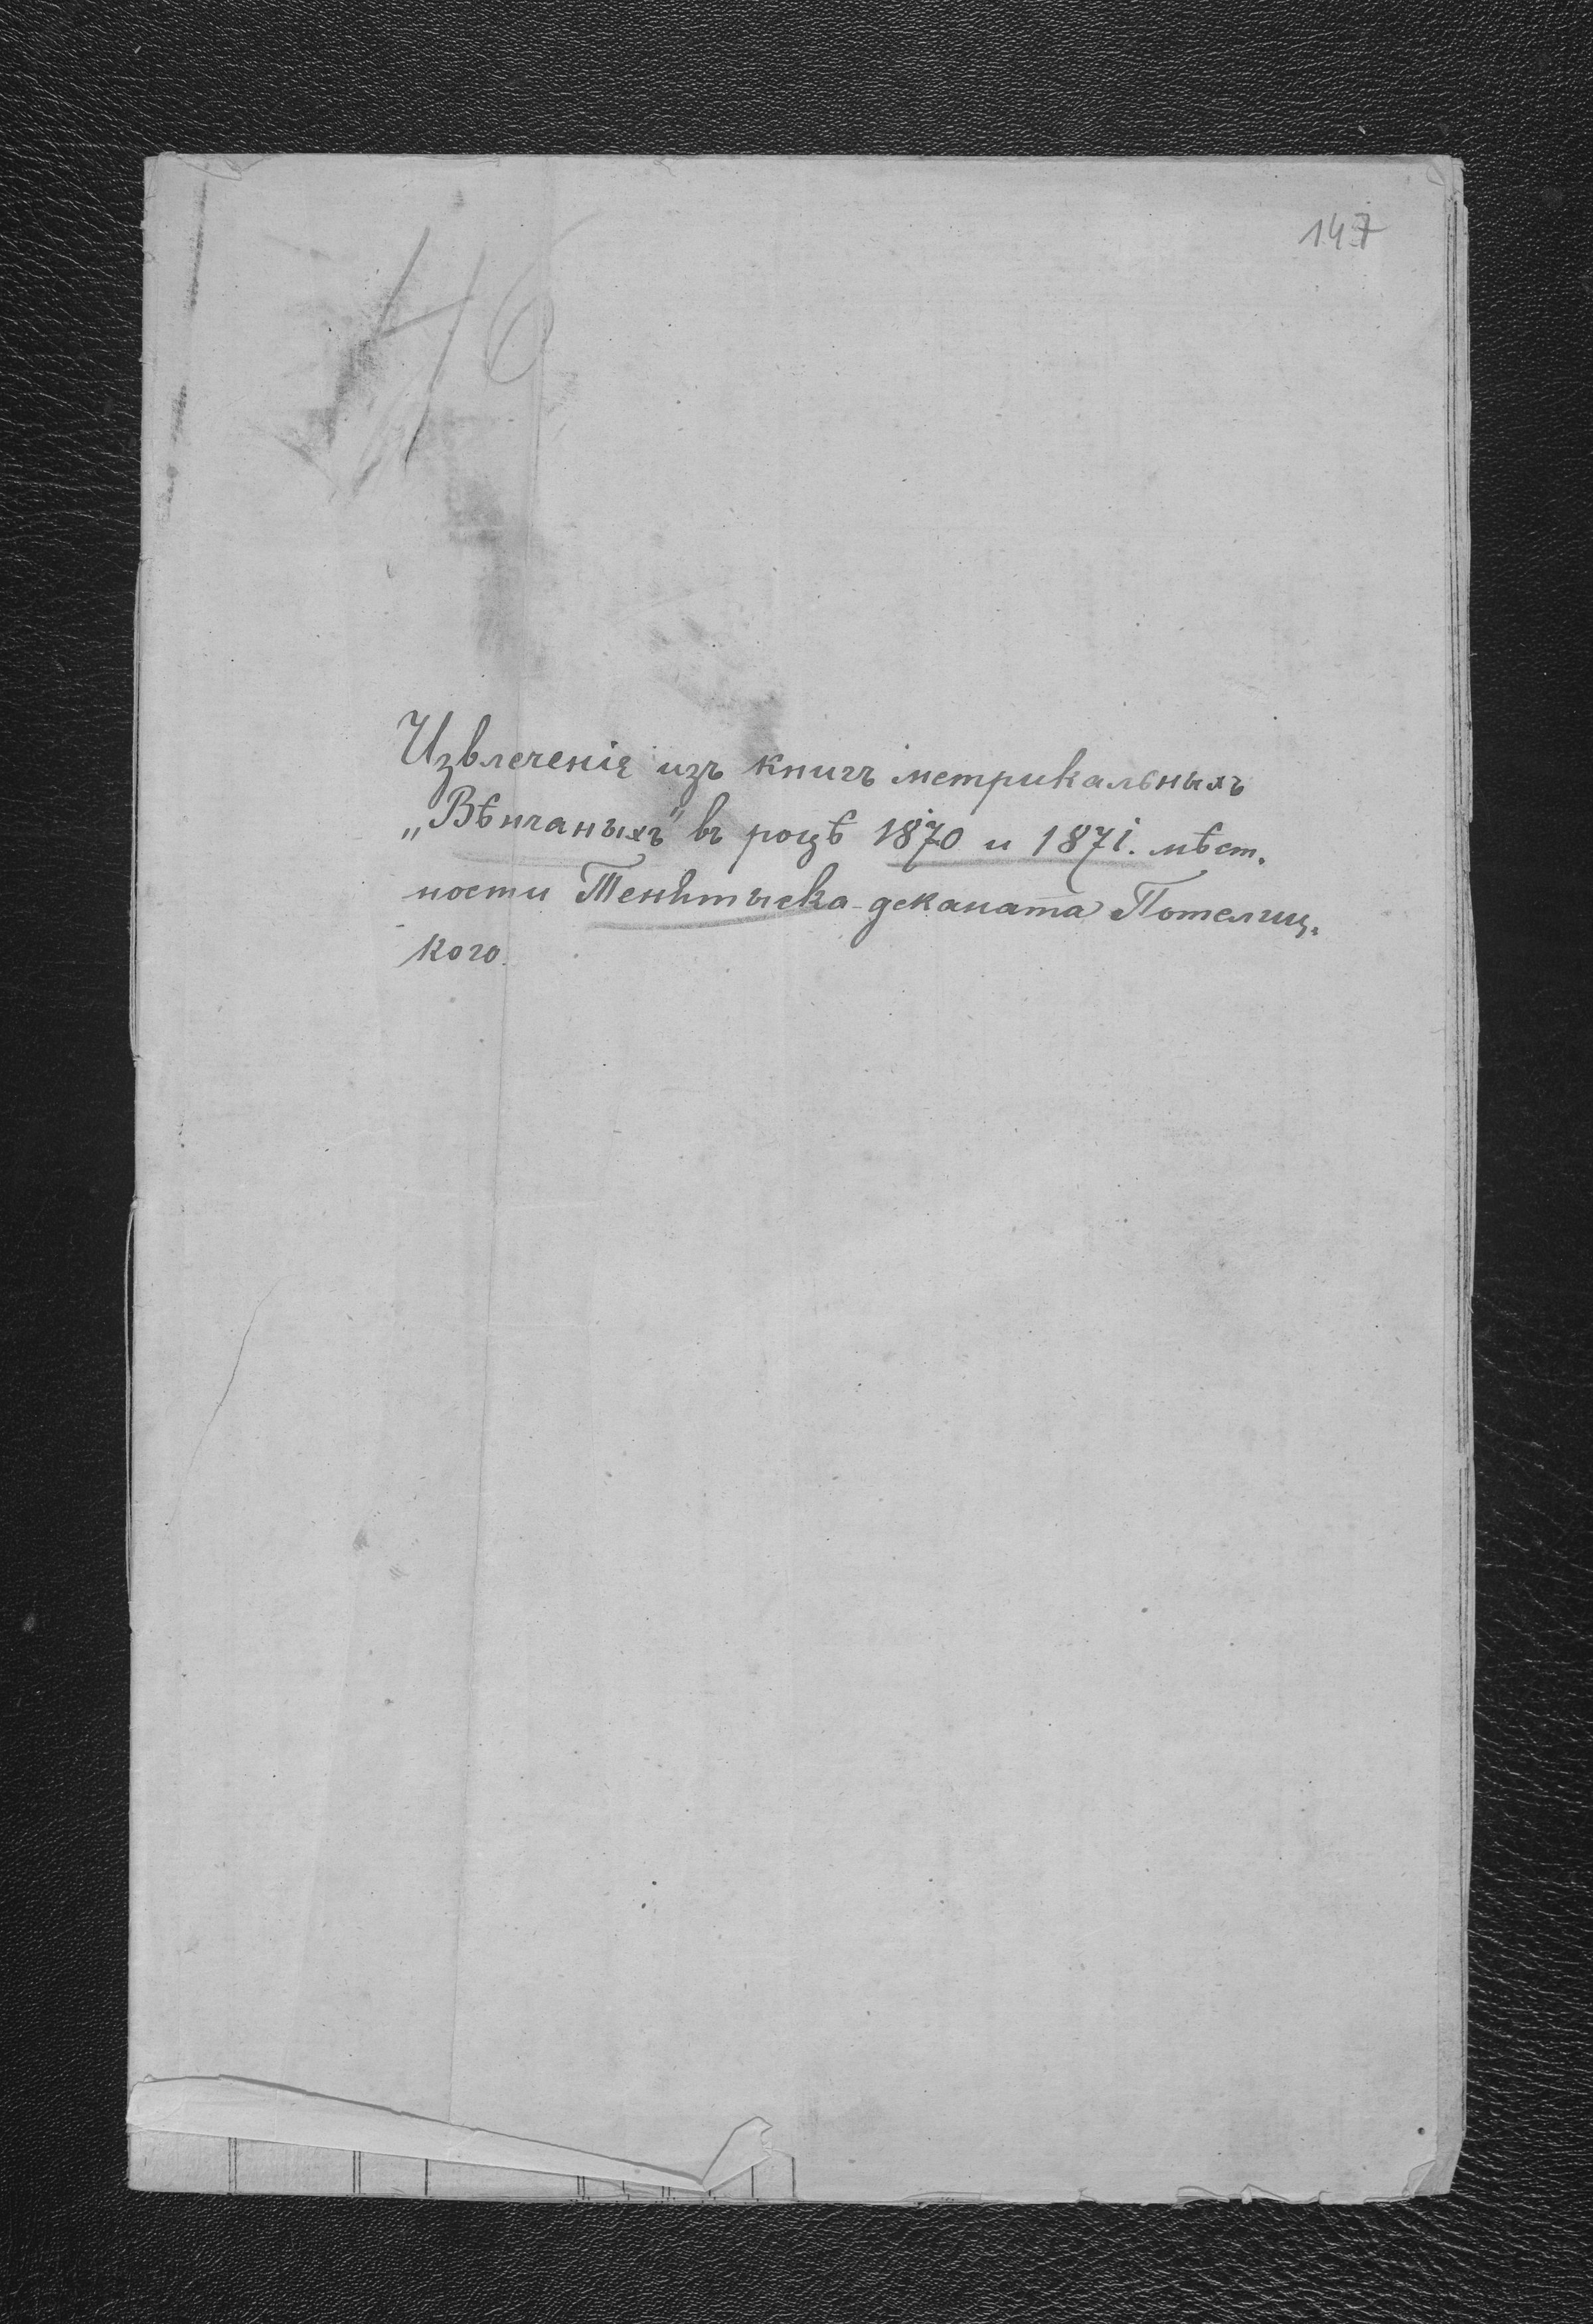 147
46
Извлеченіе изъ книгъ метрикальныхъ
„Вѣнчаныхъ" въ роцѣ 1870 и 1871. мѣст-
ности Тенѣтыска деканата Потелиц-
кого.